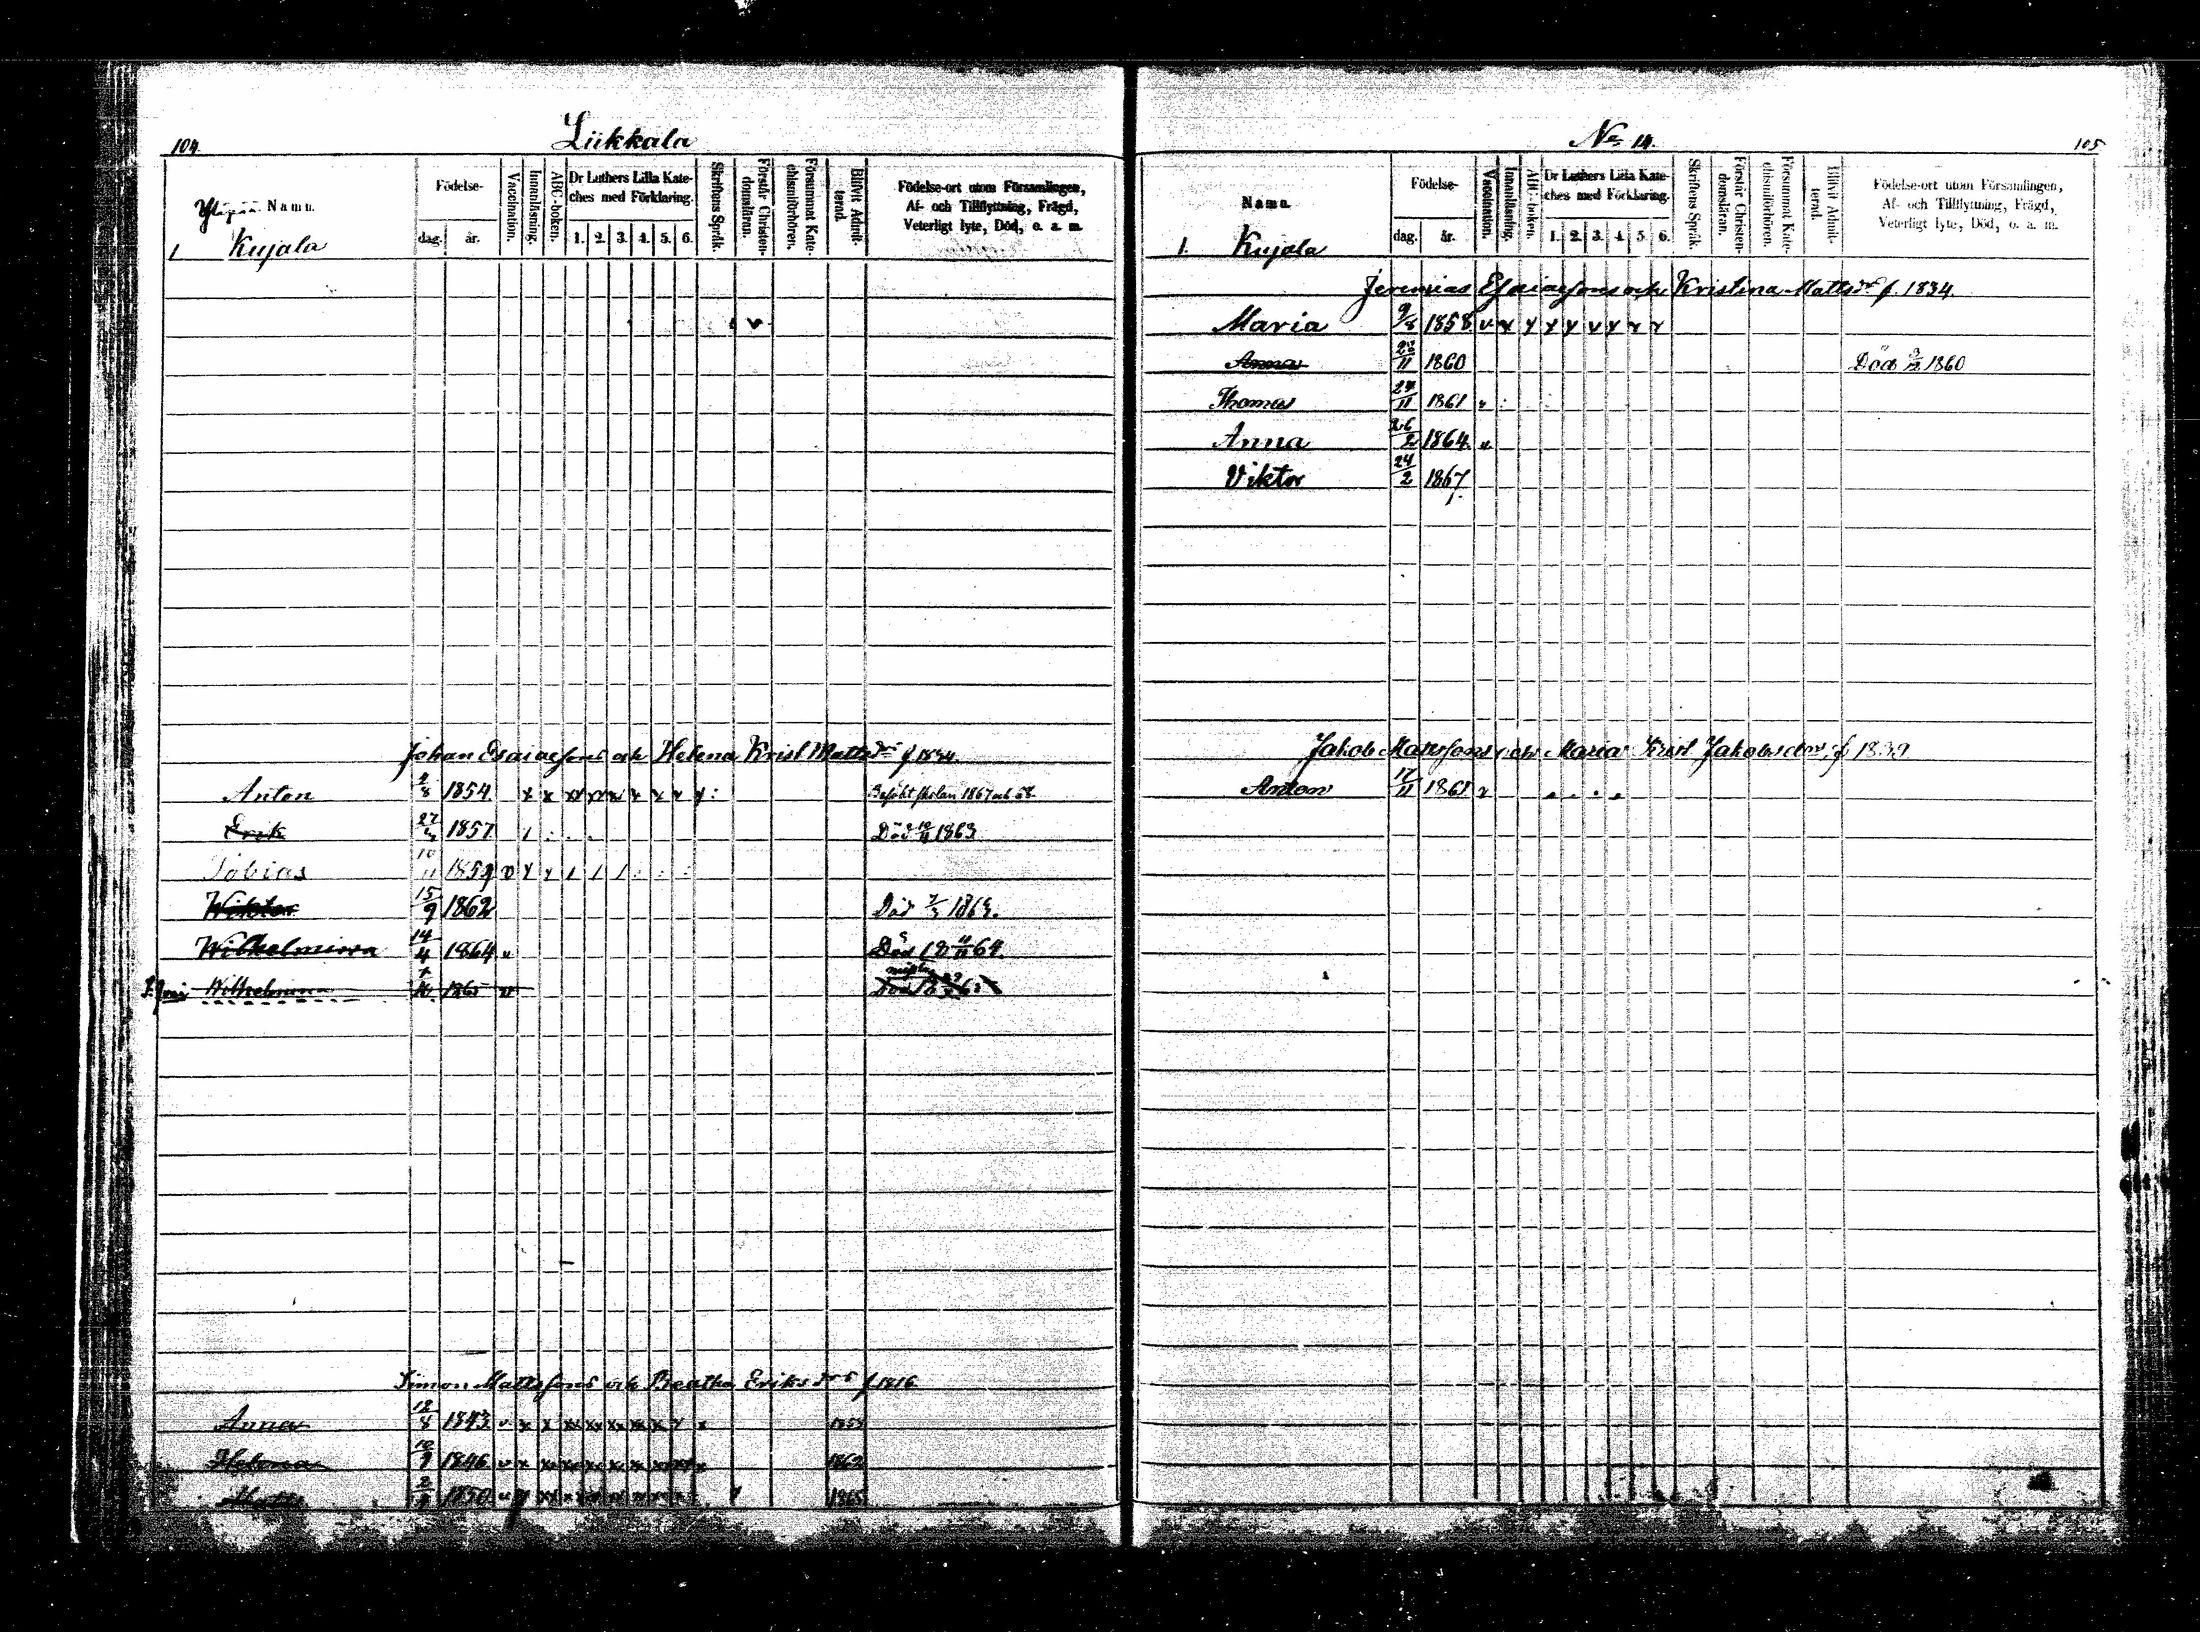 104.
Liikkala
Namn.
1 Kujala
Födelse-
dag. år.
Vaccination.
Innanläsning.
ABC-boken.
Dr Luthers Lilla Kate-
ches med Förklaring.
1. 2. 3. 4. 5. 6.
Skriftens Språk.
Förstår Christen-
domsläran.
Försummat Kate-
chismiförhören.
Blifvit Admit-
terad.
Födelse-ort utom Församlingen,
Af- och Tillflyttning, Frägd,
Veterligt lyte, Död, o. a. m.
Johan Esaiaesons och Helena Krist Mattsdrs f 1834.
Anton 2/8 1854 x x xx xx x x x x x : Besökt skolan 1867 och 68
Erik 1857 Död 1863
Tobias 10/11 1859 v x x / / /
Wiktor 15/9 1862 Död 1863.
Wilhelmina 14/4 1864 v Död 64.
Wilhelmina 1865 v
Simon Mattssons och Beatha Eriksdrs f 1816
Anna 12/8 1843 v x x xx xx xx xx x x x 1859
Helena 10/9 1846 v x 1862
Matts 1850 1865
No 14.
105
Namn.
1. Kujala
Födelse-
dag. år.
Vaccination.
Innanläsning.
ABC-boken.
Dr Luthers Lilla Kate-
ches med Förklaring.
1. 2. 3. 4. 5. 6.
Skriftens Språk.
Förstår Christen-
domsläran.
Försummat Kate-
chismiförhören.
Blifvit Admit-
terad.
Födelse-ort utom Församlingen,
Af- och Tillflyttning, Frägd,
Veterligt lyte, Död, o. a. m.
Jeremias Esaiaesons och Kristina Mattsdr f. 1834.
Maria 9/8 1858 v x x x x v x x x
Anna 1860 Död 1860
Thomas 1861 v
Anna 26/2 1864 v
Viktor 24/2 1867
Jakob Matssons och Maria Krist Jakobsdors f 1839
Anton 17/11 1861 v